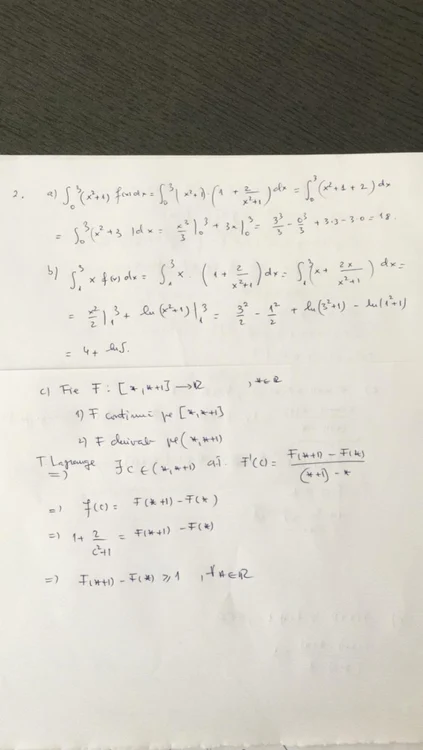 2. a) ∫₀³(x²+1) f(x)dx = ∫₀³(x²+1)·(1 + 2/(x²+1))dx = ∫₀³(x²+1+2)dx
= ∫₀³(x²+3)dx = x³/3|₀³ + 3x|₀³ = 3³/3 - 0³/3 + 3·3-3·0 = 18.
b) ∫₁³ x f(x)dx = ∫₁³ x·(1 + 2/(x²+1))dx = ∫₁³(x + 2x/(x²+1))dx =
= x²/2|₁³ + ln(x²+1)|₁³ = 3²/2 - 1²/2 + ln(3²+1) - ln(1²+1)
= 4 + ln5.
c) Fie F: [x, x+1] → ℝ , x∈ℝ
1) F continuă pe [x, x+1]
2) F derivab pe (x, x+1)
T Lagrange => ∃ c ∈ (x, x+1) aî. F'(c) = (F(x+1) - F(x))/((x+1) - x)
=> f(c) = F(x+1) - F(x)
=> 1 + 2/(c²+1) = F(x+1) - F(x)
=> F(x+1) - F(x) ≥ 1 , ∀x∈ℝ